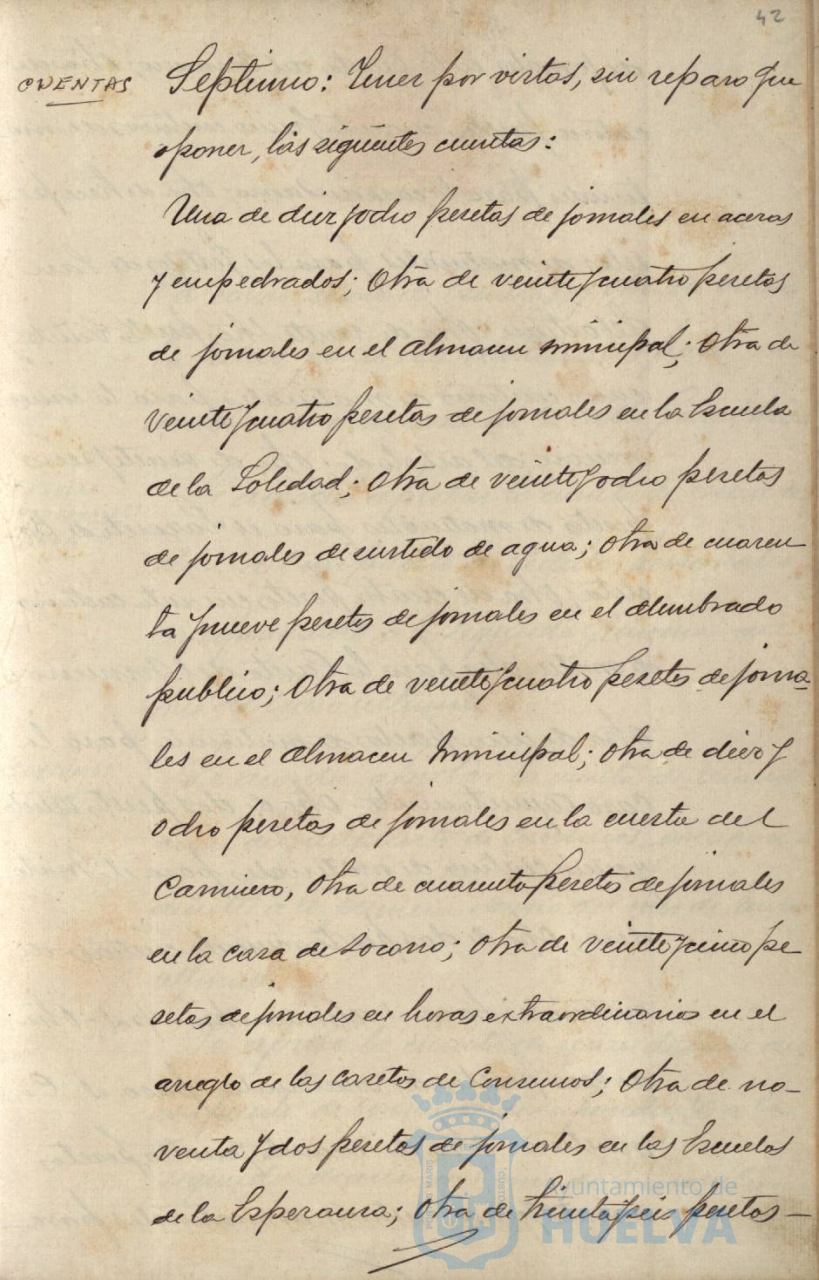 42
CUENTAS
Septimo: Tener por vistas, sin reparo que
oponer, las siguientes cuentas:
Una de diez y ocho pesetas de jornales en aceras
y empedrados; Otra de veinte y cuatro pesetas
de jornales en el Almacen municipal; Otra de
veinte y cuatro pesetas de jornales en la Escuela
de la Soledad; Otra de veinte y ocho pesetas
de jornales de surtido de agua; Otra de cuaren
ta y nueve pesetas de jornales en el alumbrado
publico; Otra de veinte y cuatro pesetas de jorna-
les en el Almacen Municipal; Otra de diez y
ocho pesetas de jornales en la cuesta del
Carnicero, Otra de cuarenta pesetas de jornales
en la casa de Socorro; Otra de veinte y cinco pe
setas de jornales en horas extraordinarias en el
arreglo de las casetas de Consumos; Otra de no-
venta y dos pesetas de jornales en las Escuelas
de la Esperanza; Otra de treinta y seis pesetas—
Ayuntamiento de
HUELVA